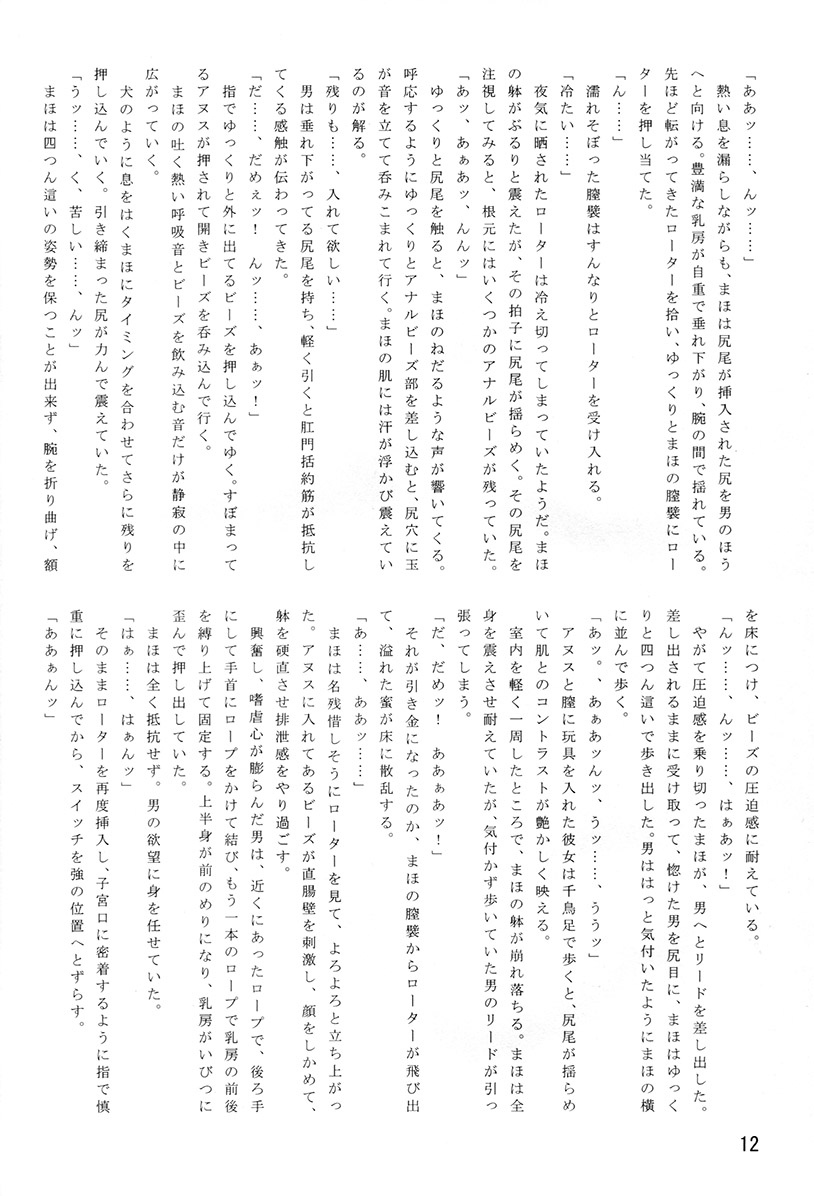 「ああッ……、んッ……」
熱い息を漏らしながらも、まほは尻尾が挿入された尻を男のほう
へと向ける。豊満な乳房が自重で垂れ下がり、腕の間で揺れている。
先ほど転がってきたローターを拾い、ゆっくりとまほの膣襞にロー
ターを押し当てた。
「ん……」
濡れそぼった膣襞はすんなりとローターを受け入れる。
「冷たい……」
夜気に晒されたローターは冷え切ってしまっていたようだ。まほ
の躰がぶるりと震えたが、その拍子に尻尾が揺らめく。その尻尾を
注視してみると、根元にはいくつかのアナルビーズが残っていた。
「あッ、あぁあッ、んんッ」
ゆっくりと尻尾を触ると、まほのねだるような声が響いてくる。
呼応するようにゆっくりとアナルビーズ部を差し込むと、尻穴に玉
が音を立てて呑みこまれて行く。まほの肌には汗が浮かび震えてい
るのが解る。
「残りも……、入れて欲しい……」
男は垂れ下がってる尻尾を持ち、軽く引くと肛門括約筋が抵抗し
てくる感触が伝わってきた。
「だ……、だめぇッ！　んッ……、あぁッ！」
指でゆっくりと外に出てるビーズを押し込んでゆく。すぼまって
るアヌスが押されて開きビーズを呑み込んで行く。
まほの吐く熱い呼吸音とビーズを飲み込む音だけが静寂の中に
広がっていく。
犬のように息をはくまほにタイミングを合わせてさらに残りを
押し込んでいく。引き締まった尻が力んで震えていた。
「うッ……、く、苦しい……、んッ」
まほは四つん這いの姿勢を保つことが出来ず、腕を折り曲げ、額
を床につけ、ビーズの圧迫感に耐えている。
「んッ……、んッ……、はぁあッ！」
やがて圧迫感を乗り切ったまほが、男へとリードを差し出した。
差し出されるままに受け取って、惚けた男を尻目に、まほはゆっく
りと四つん這いで歩き出した。男ははっと気付いたようにまほの横
に並んで歩く。
「あッ。、あぁあッんッ、うッ……、ううッ」
アヌスと膣に玩具を入れた彼女は千鳥足で歩くと、尻尾が揺らめ
いて肌とのコントラストが艶かしく映える。
室内を軽く一周したところで、まほの躰が崩れ落ちる。まほは全
身を震えさせ耐えていたが、気付かず歩いていた男のリードが引っ
張ってしまう。
「だ、だめッ！　ああぁあッ！」
それが引き金になったのか、まほの膣襞からローターが飛び出
て、溢れた蜜が床に散乱する。
「あ……、ああッ……」
まほは名残惜しそうにローターを見て、よろよろと立ち上がっ
た。アヌスに入れてあるビーズが直腸壁を刺激し、顔をしかめて、
躰を硬直させ排泄感をやり過ごす。
興奮し、嗜虐心が膨らんだ男は、近くにあったロープで、後ろ手
にして手首にロープをかけて結び、もう一本のロープで乳房の前後
を縛り上げて固定する。上半身が前のめりになり、乳房がいびつに
歪んで押し出していた。
まほは全く抵抗せず。男の欲望に身を任せていた。
「はぁ……、はぁんッ」
そのままローターを再度挿入し、子宮口に密着するように指で慎
重に押し込んでから、スイッチを強の位置へとずらす。
「ああぁんッ」
12